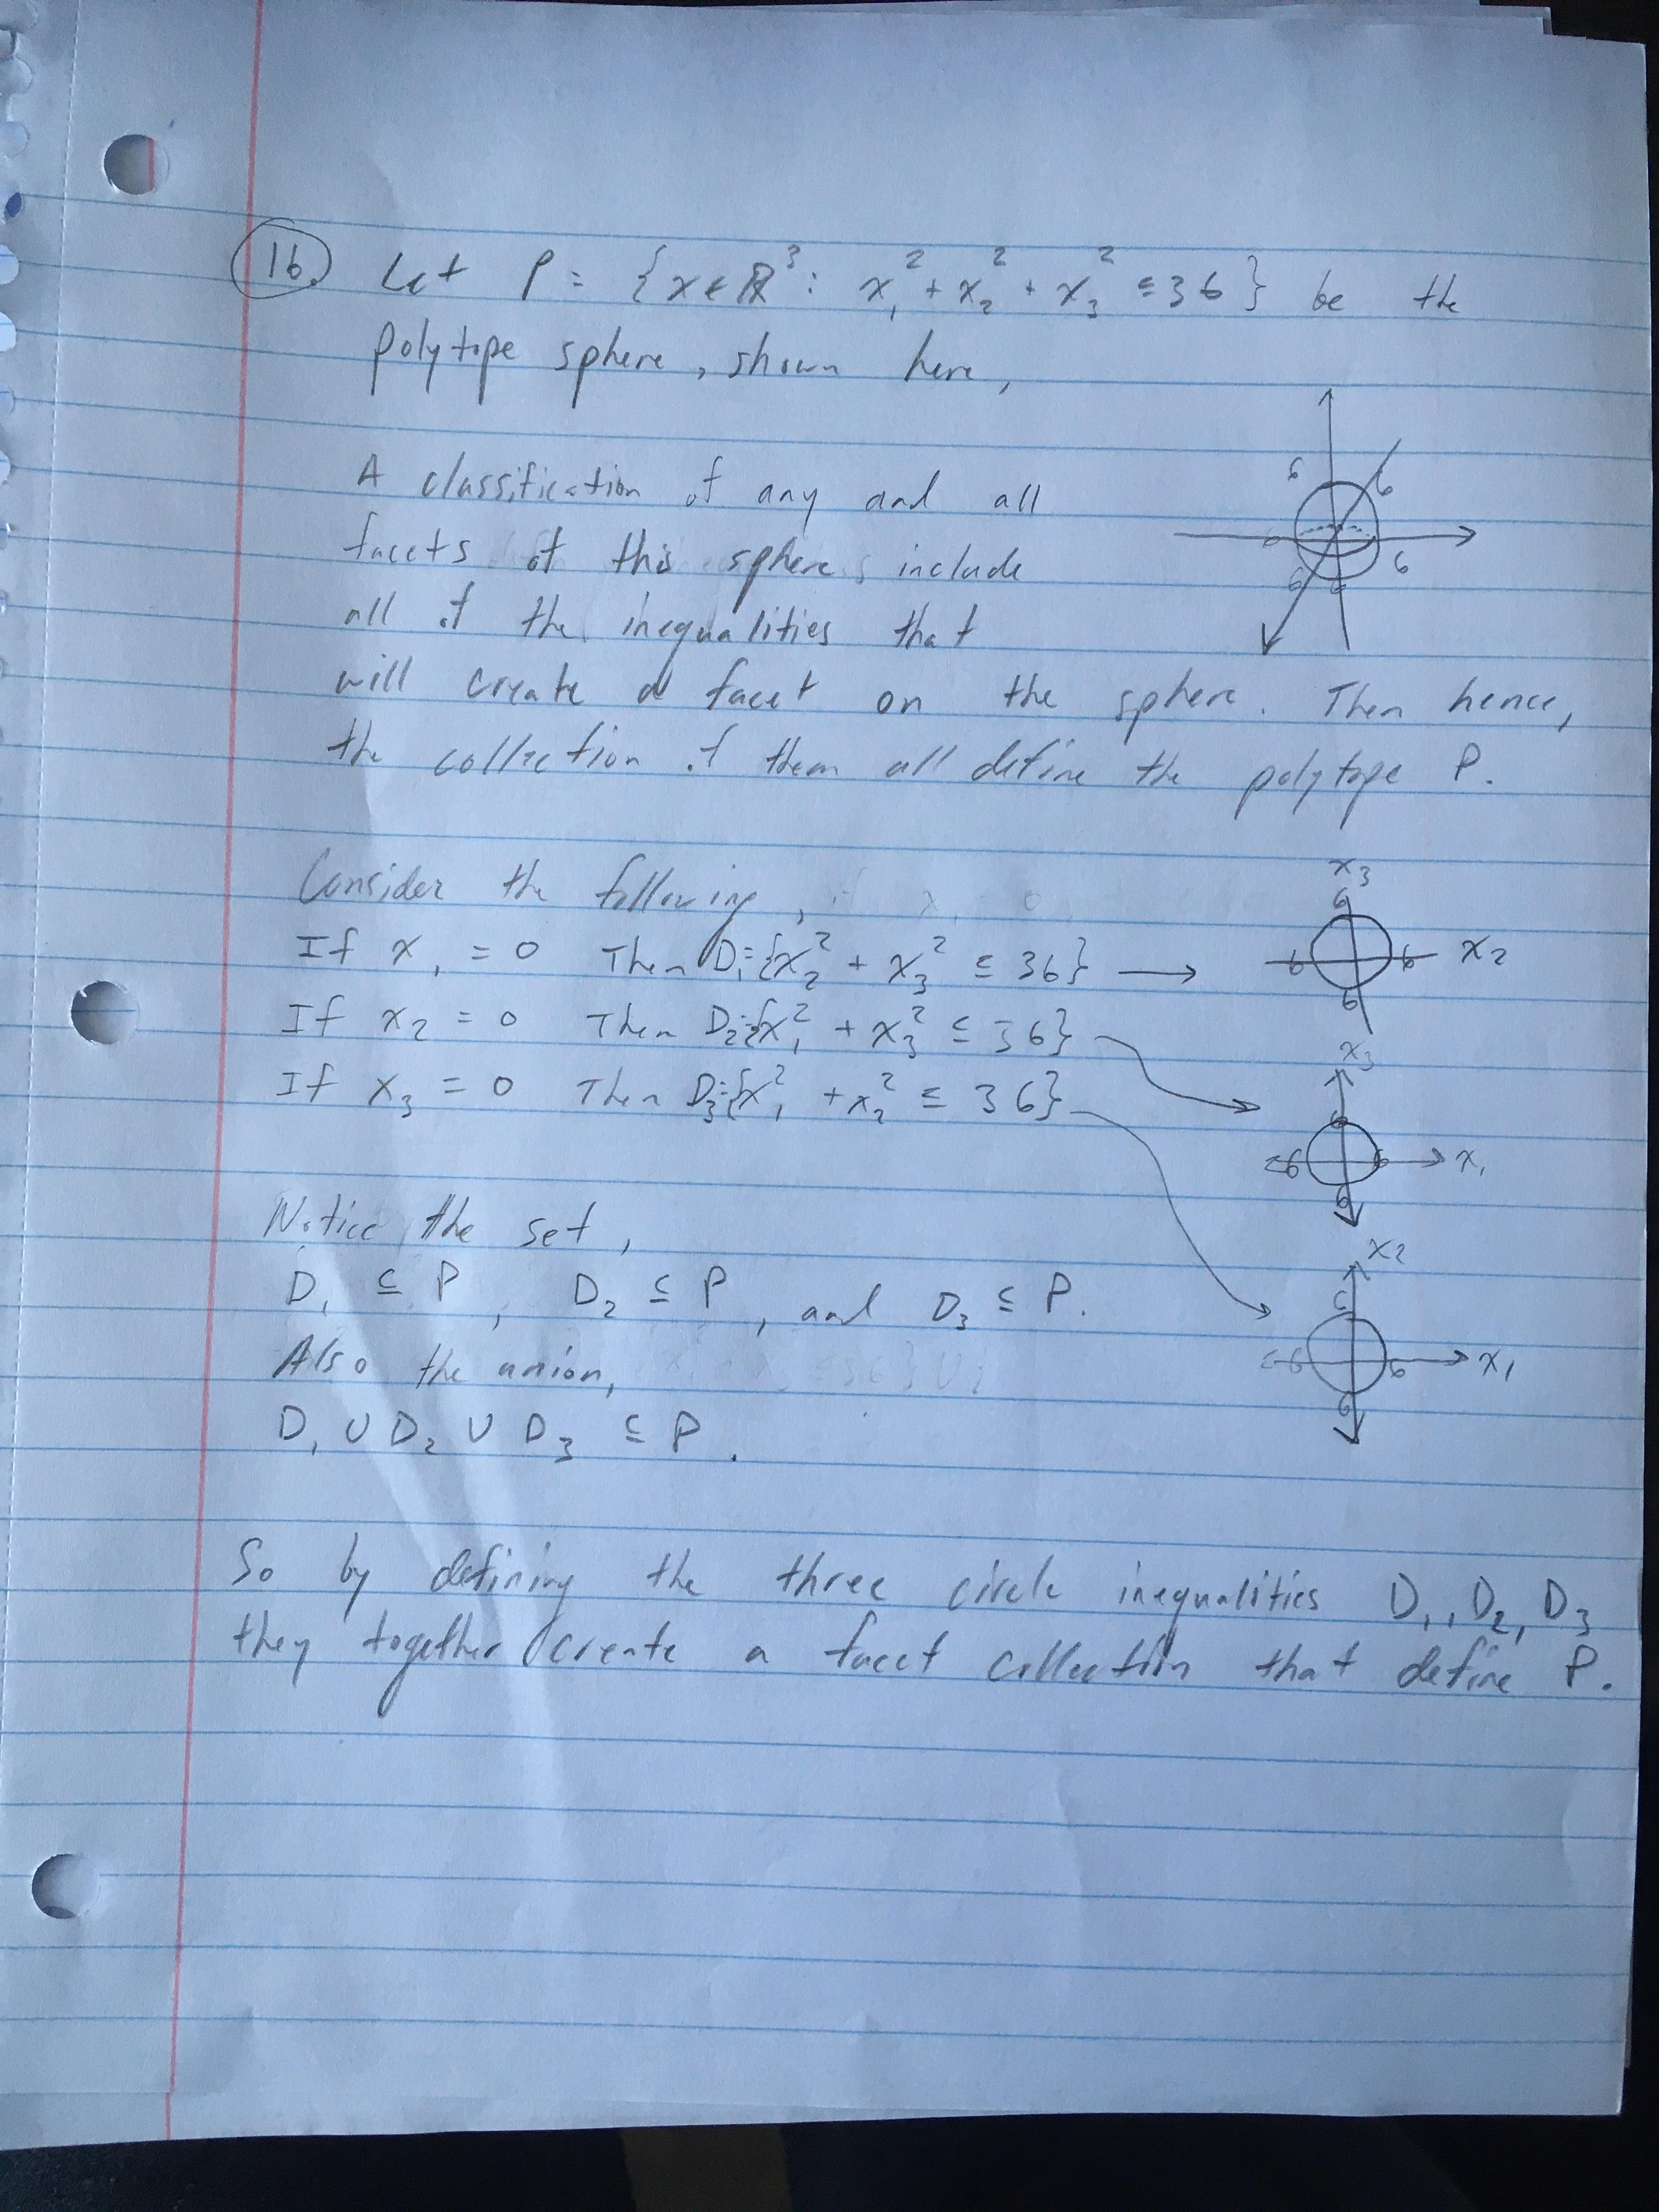 16. Let P = {x ∈ ℝ³ : x₁² + x₂² + x₃² ≤ 36} be the
polytope sphere, shown here,
6 6
6 6
6 6
A classification of any and all
facets of this sphere include
all of the inequalities that
will create a facet on the sphere. Then hence,
the collection of them all define the polytope P.
Consider the following,
If x₁ = 0 Then D₁={x₂² + x₃² ≤ 36} →
If x₂ = 0 Then D₂={x₁² + x₃² ≤ 36}
If x₃ = 0 Then D₃={x₁² + x₂² ≤ 36}
x₃
6
6 6 x₂
6
x₃
6
6 6 x₁
6
x₂
6
6 6 x₁
6
Notice the set,
D₁ ⊆ P, D₂ ⊆ P, and D₃ ⊆ P.
Also the union,
D₁ ∪ D₂ ∪ D₃ ⊆ P.
So by defining the three circle inequalities D₁, D₂, D₃
they together create a facet collection that define P.